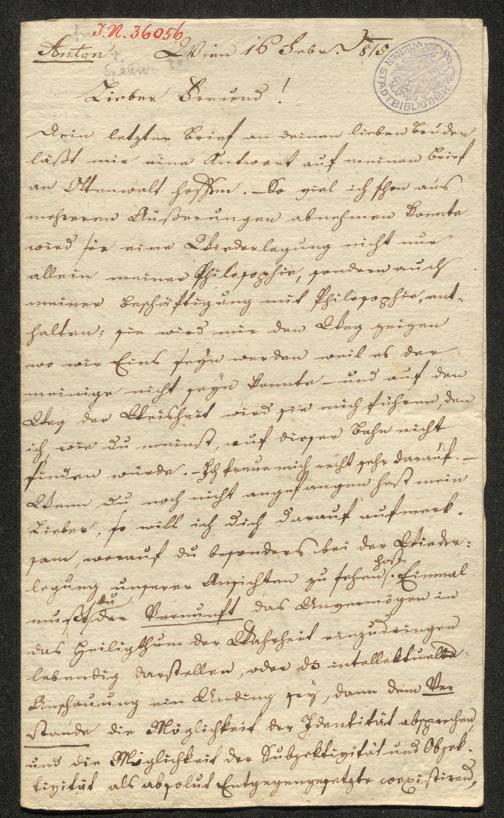 J.N. 36056
Anton
Wien 16 Febr. 1818
WIENER STADTBIBLIOTHEK
Lieber Freund!
Dein letzter Brief an deinen lieben Bruder
läßt mir eine Antwort auf meinen Brief
an Ottenwalt hoffen. – So viel ich schon aus
mehreren Äußerungen abnehmen konnte
wird sie eine Wiederlegung nicht nur
allein meiner Philosophie, sondern auch
meiner Beschäftigung mit Philosophie, ent-
halten; sie wird mir den Weg zeigen
wo wir Eins seyn werden weil es der
meinige nicht seyn konnte – und auf den
Weg der Weisheit wird sie mich führen, den
ich, wie du meinst, auf dieser Bahn nicht
finden würde. – Ich freue mich recht sehr darauf. –
Wenn du noch nicht angefangen hast mein
Lieber, so will ich dich darauf aufmerk-
sam, worauf du besonders bei der Wieder-
legung unserer Ansichten zu sehen hast. Einmal
mußt du der Vernunft das Unvermögen in
das Heiligthum der Wahrheit einzudringen
lebendig darstellen, oder daß intellektuelle
Anschauung ein Unding sey, dann dem Ver
stande die Möglichkeit der Identität absprechen
und die Möglichkeit der Subjektivität und Objek-
tivität als absolut Entgegengesetzte coexistirend,